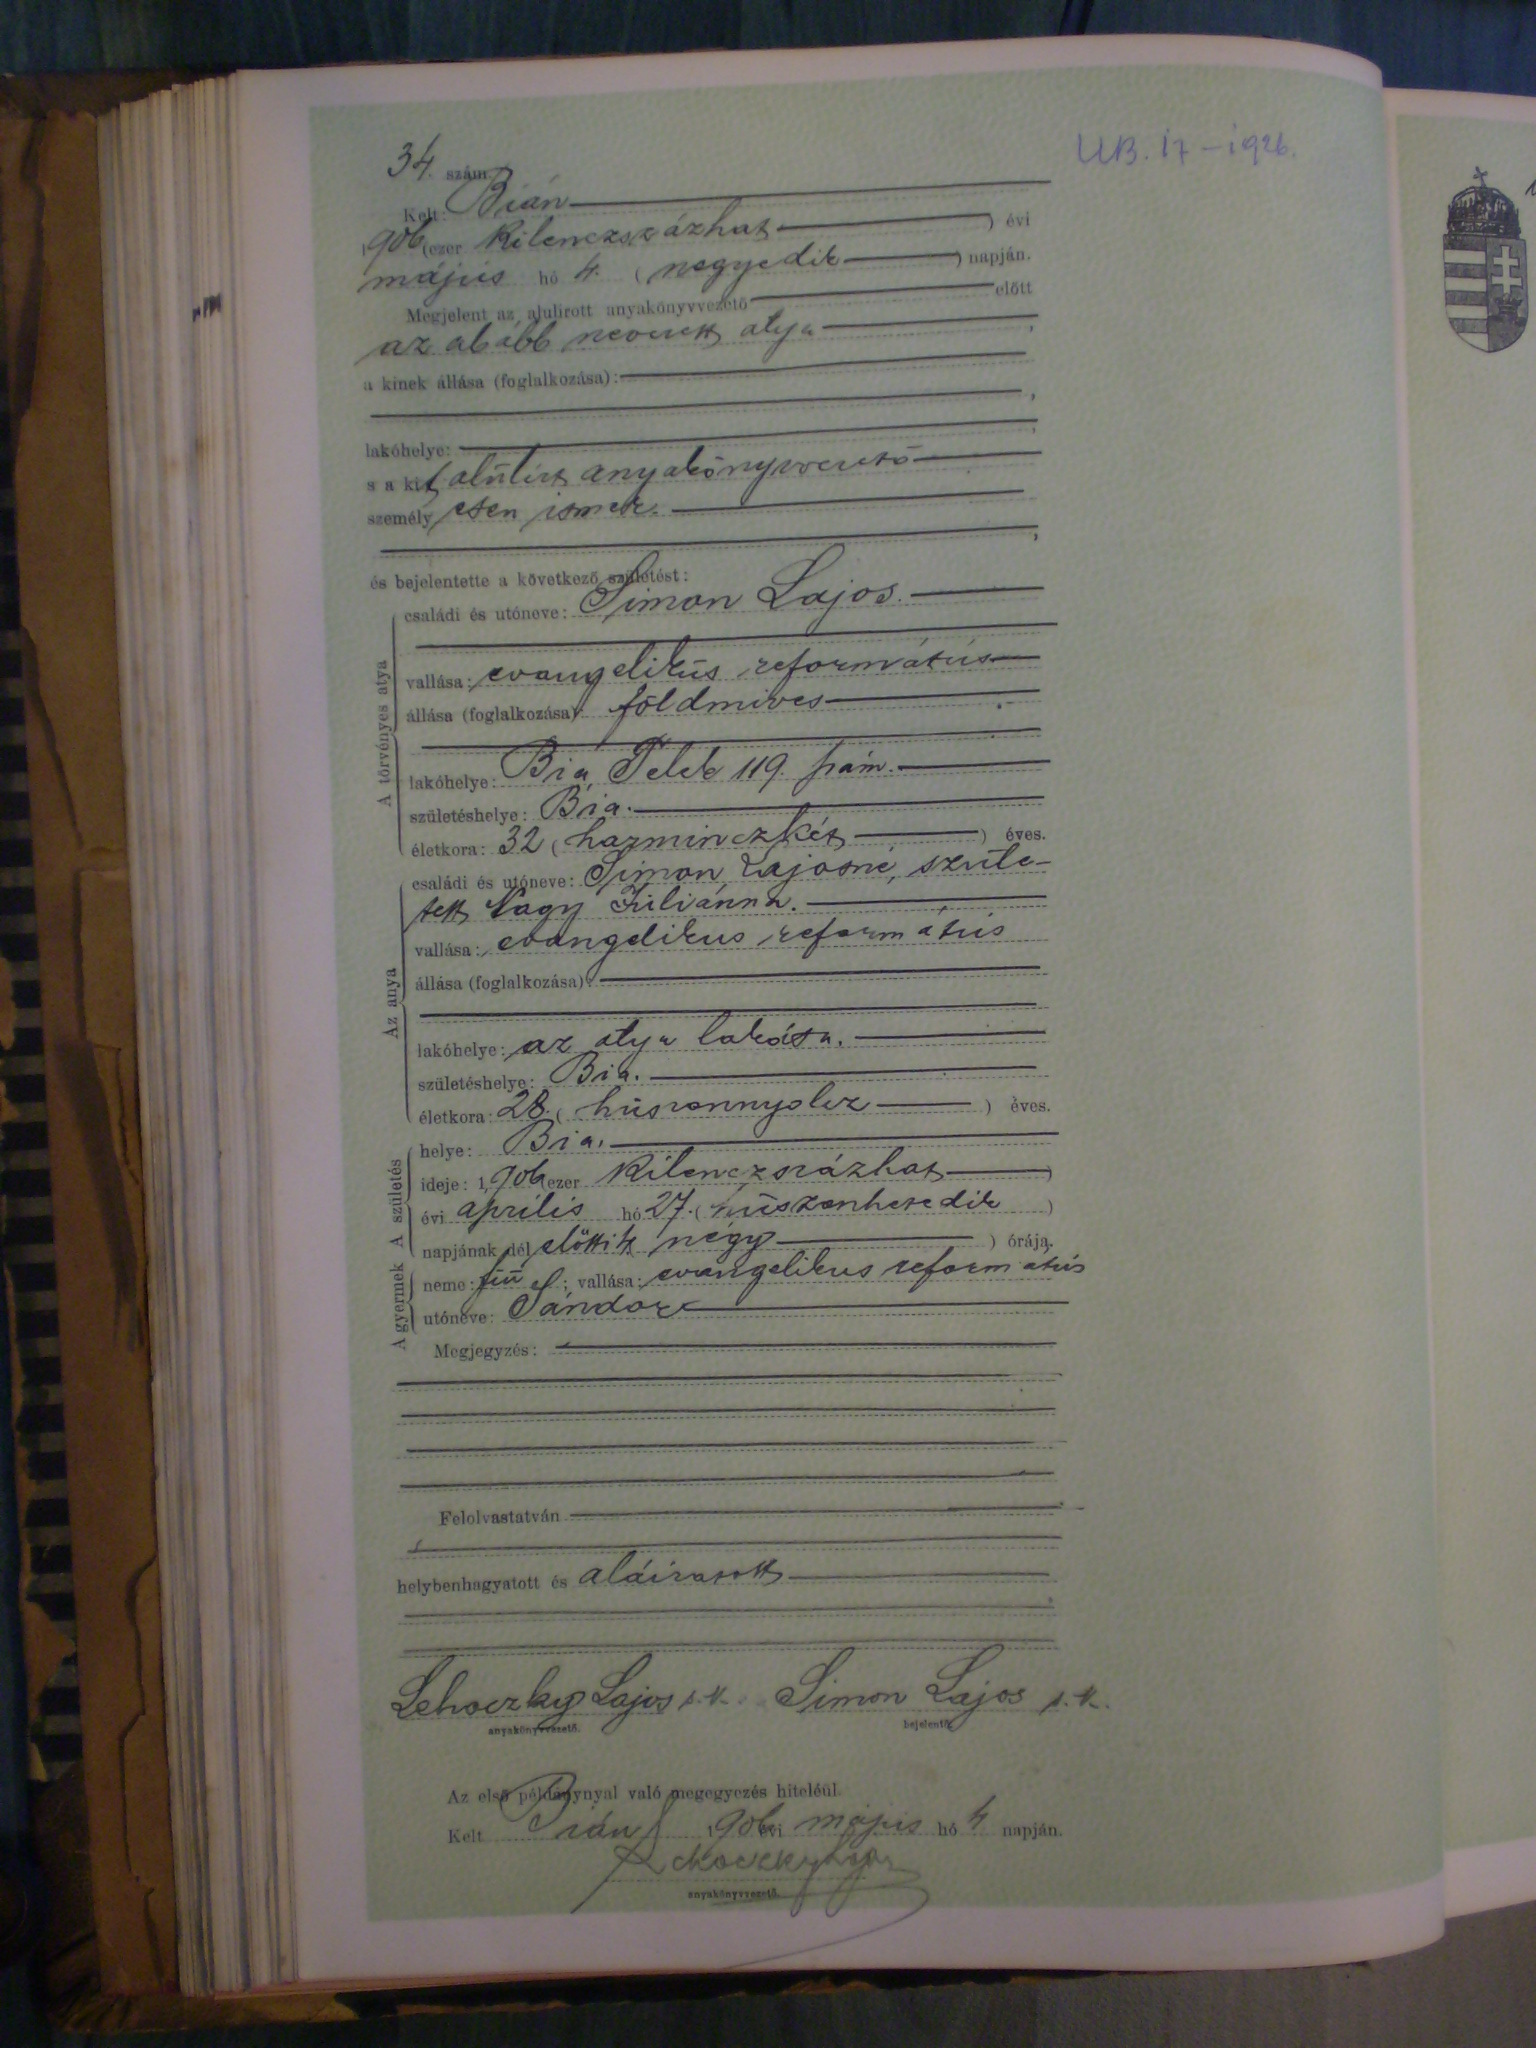 34. szám.
UB. 17 – 1926.
Kelt: Bián
1906 (ezer kilenczszázhat ) évi
május hó 4. ( negyedik ) napján.
Megjelent az alulirott anyakönyvvezető előtt
az alább nevezett atya
a kinek állása (foglalkozása):
lakóhelye:
s a kit alulirt anyakönyvvezető
személy esen ismer.
és bejelentette a következő születést:
A törvényes atya
családi és utóneve: Simon Lajos.
vallása: evangelikus református
állása (foglalkozása): földmives
lakóhelye: Bia, Telek 119. szám.
születéshelye: Bia.
életkora: 32 ( harminczkét ) éves.
Az anya
családi és utóneve: Simon Lajosné, szüle-
tett Nagy Juliánna.
vallása: evangelikus református
állása (foglalkozása):
lakóhelye: az atya lakása.
születéshelye: Bia.
életkora: 28. ( huszonnyolcz ) éves.
A születés
helye: Bia.
ideje: 1,906 ezer kilenczszázhat )
évi április hó 27. ( huszonhetedik )
napjának dél előtti 4 négy ) órája.
A gyermek
neme: fiu ; vallása: evangelikus református
utóneve: Sándor
Megjegyzés:
Felolvastatván
helybenhagyatott és aláiratott
Lehoczky Lajos s. k. Simon Lajos s. k.
anyakönyvvezető. bejelentő.
Az első példánynyal való megegyezés hiteléül.
Kelt Bián 1906 évi május hó 4 napján.
Lehoczky Lajos
anyakönyvvezető.